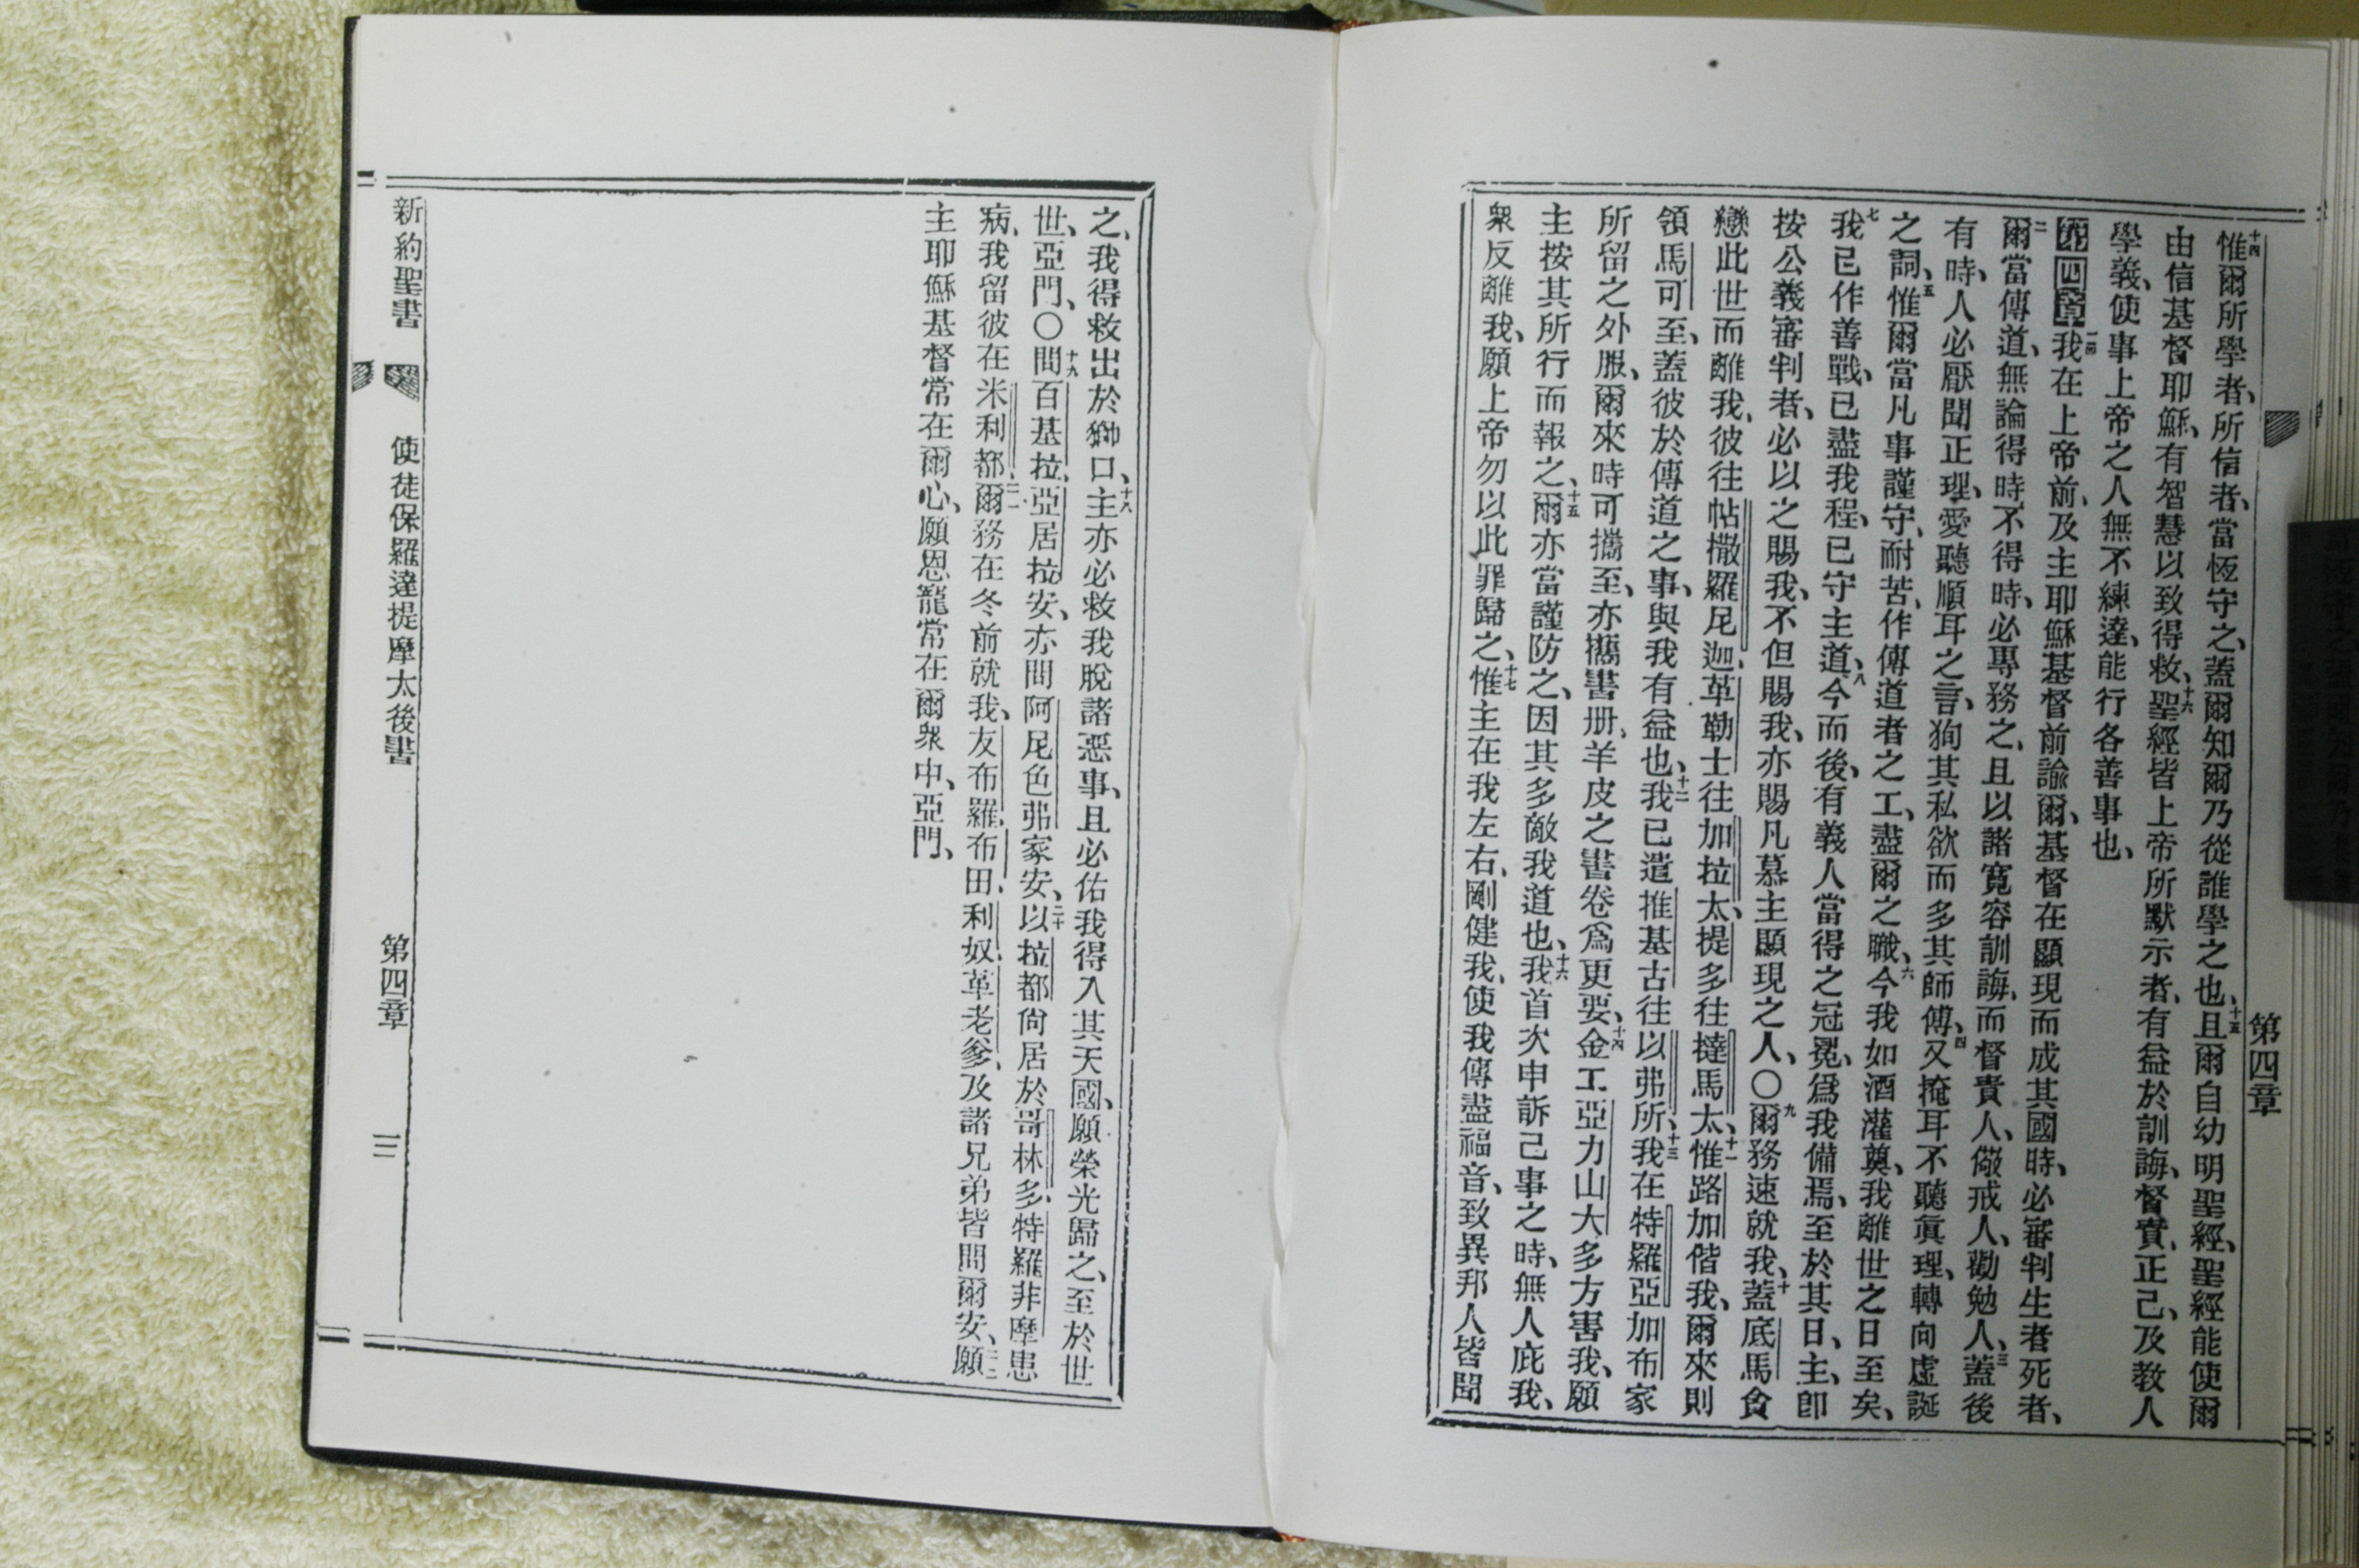 第四章
十四惟爾所學者、所信者、當恆守之、蓋爾知爾乃從誰學之也、十五且爾自幼明聖經、聖經能使爾
由信基督耶穌、有智慧以致得救、十六聖經皆上帝所默示者、有益於訓誨、督責、正己、及教人
學義、使事上帝之人無不練達、能行各善事也、
第四章一我在上帝前、及主耶穌基督前諭爾、基督在顯現而成其國時、必審判生者死者、
二爾當傳道、無論得時不得時、必專務之、且以諸寬容訓誨、而督責人、儆戒人、勸勉人、三蓋後
有時、人必厭聞正理、愛聽順耳之言、狥其私欲而多其師傅、四又掩耳不聽眞理、轉向虛誕
之詞、五惟爾當凡事謹守、耐苦、作傳道者之工、盡爾之職、六今我如酒灌奠、我離世之日至矣、
七我已作善戰、已盡我程、已守主道、八今而後、有義人當得之冠冕、爲我備焉、至於其日、主、卽
按公義審判者、必以之賜我、不但賜我、亦賜凡慕主顯現之人、〇九爾務速就我、十蓋底馬貪
戀此世而離我、彼往帖撒羅尼迦、革勒士往加拉太、提多往撻馬太、十一惟路加偕我、爾來則
領馬可至、蓋彼於傳道之事、與我有益也、十二我已遣推基古往以弗所、十三我在特羅亞加布家
所留之外服、爾來時可攜至、亦攜書册、羊皮之書卷爲更要、十四金工亞力山大多方害我、願
主按其所行而報之、十五爾亦當謹防之、因其多敵我道也、十六我首次申訴己事之時、無人庇我、
衆反離我、願上帝勿以此罪歸之、十七惟主在我左右、剛健我、使我傳盡福音、致異邦人皆聞
之、我得救出於獅口、十八主亦必救我脫諸惡事、且必佑我得入其天國、願榮光歸之、至於世
世、亞門、〇十九問百基拉、亞居拉安、亦問阿尼色弗家安、二十以拉都尙居於哥林多、特羅非摩患
病、我留彼在米利都、二一爾務在冬前就我、友布羅、布田、利奴、革老爹、及諸兄弟皆問爾安、二二願
主耶穌基督常在爾心、願恩寵常在爾衆中、亞門、
新約聖書 使徒保羅達提摩太後書 第四章 三